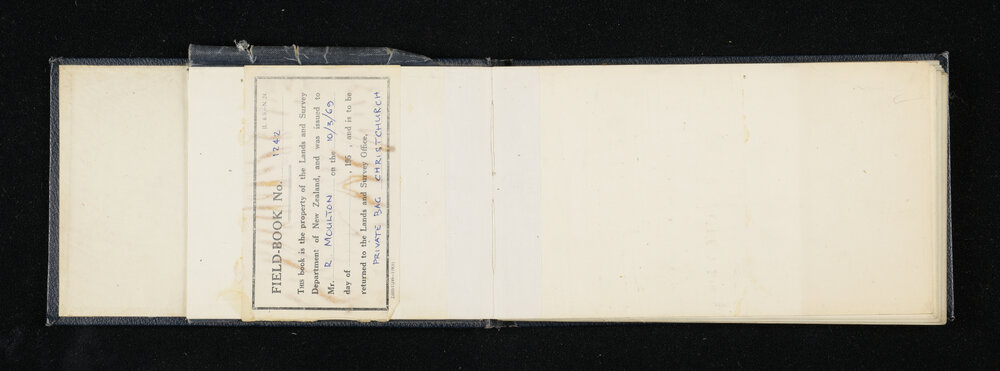 FIELD-BOOK No. 1242
THIS book is the property of the Lands and Survey
Department of New Zealand, and was issued to
Mr. R MOULTON on the 10/3/69
day of , 195 , and is to be
returned to the Lands and Survey Office,
PRIVATE BAG CHRISTCHURCH